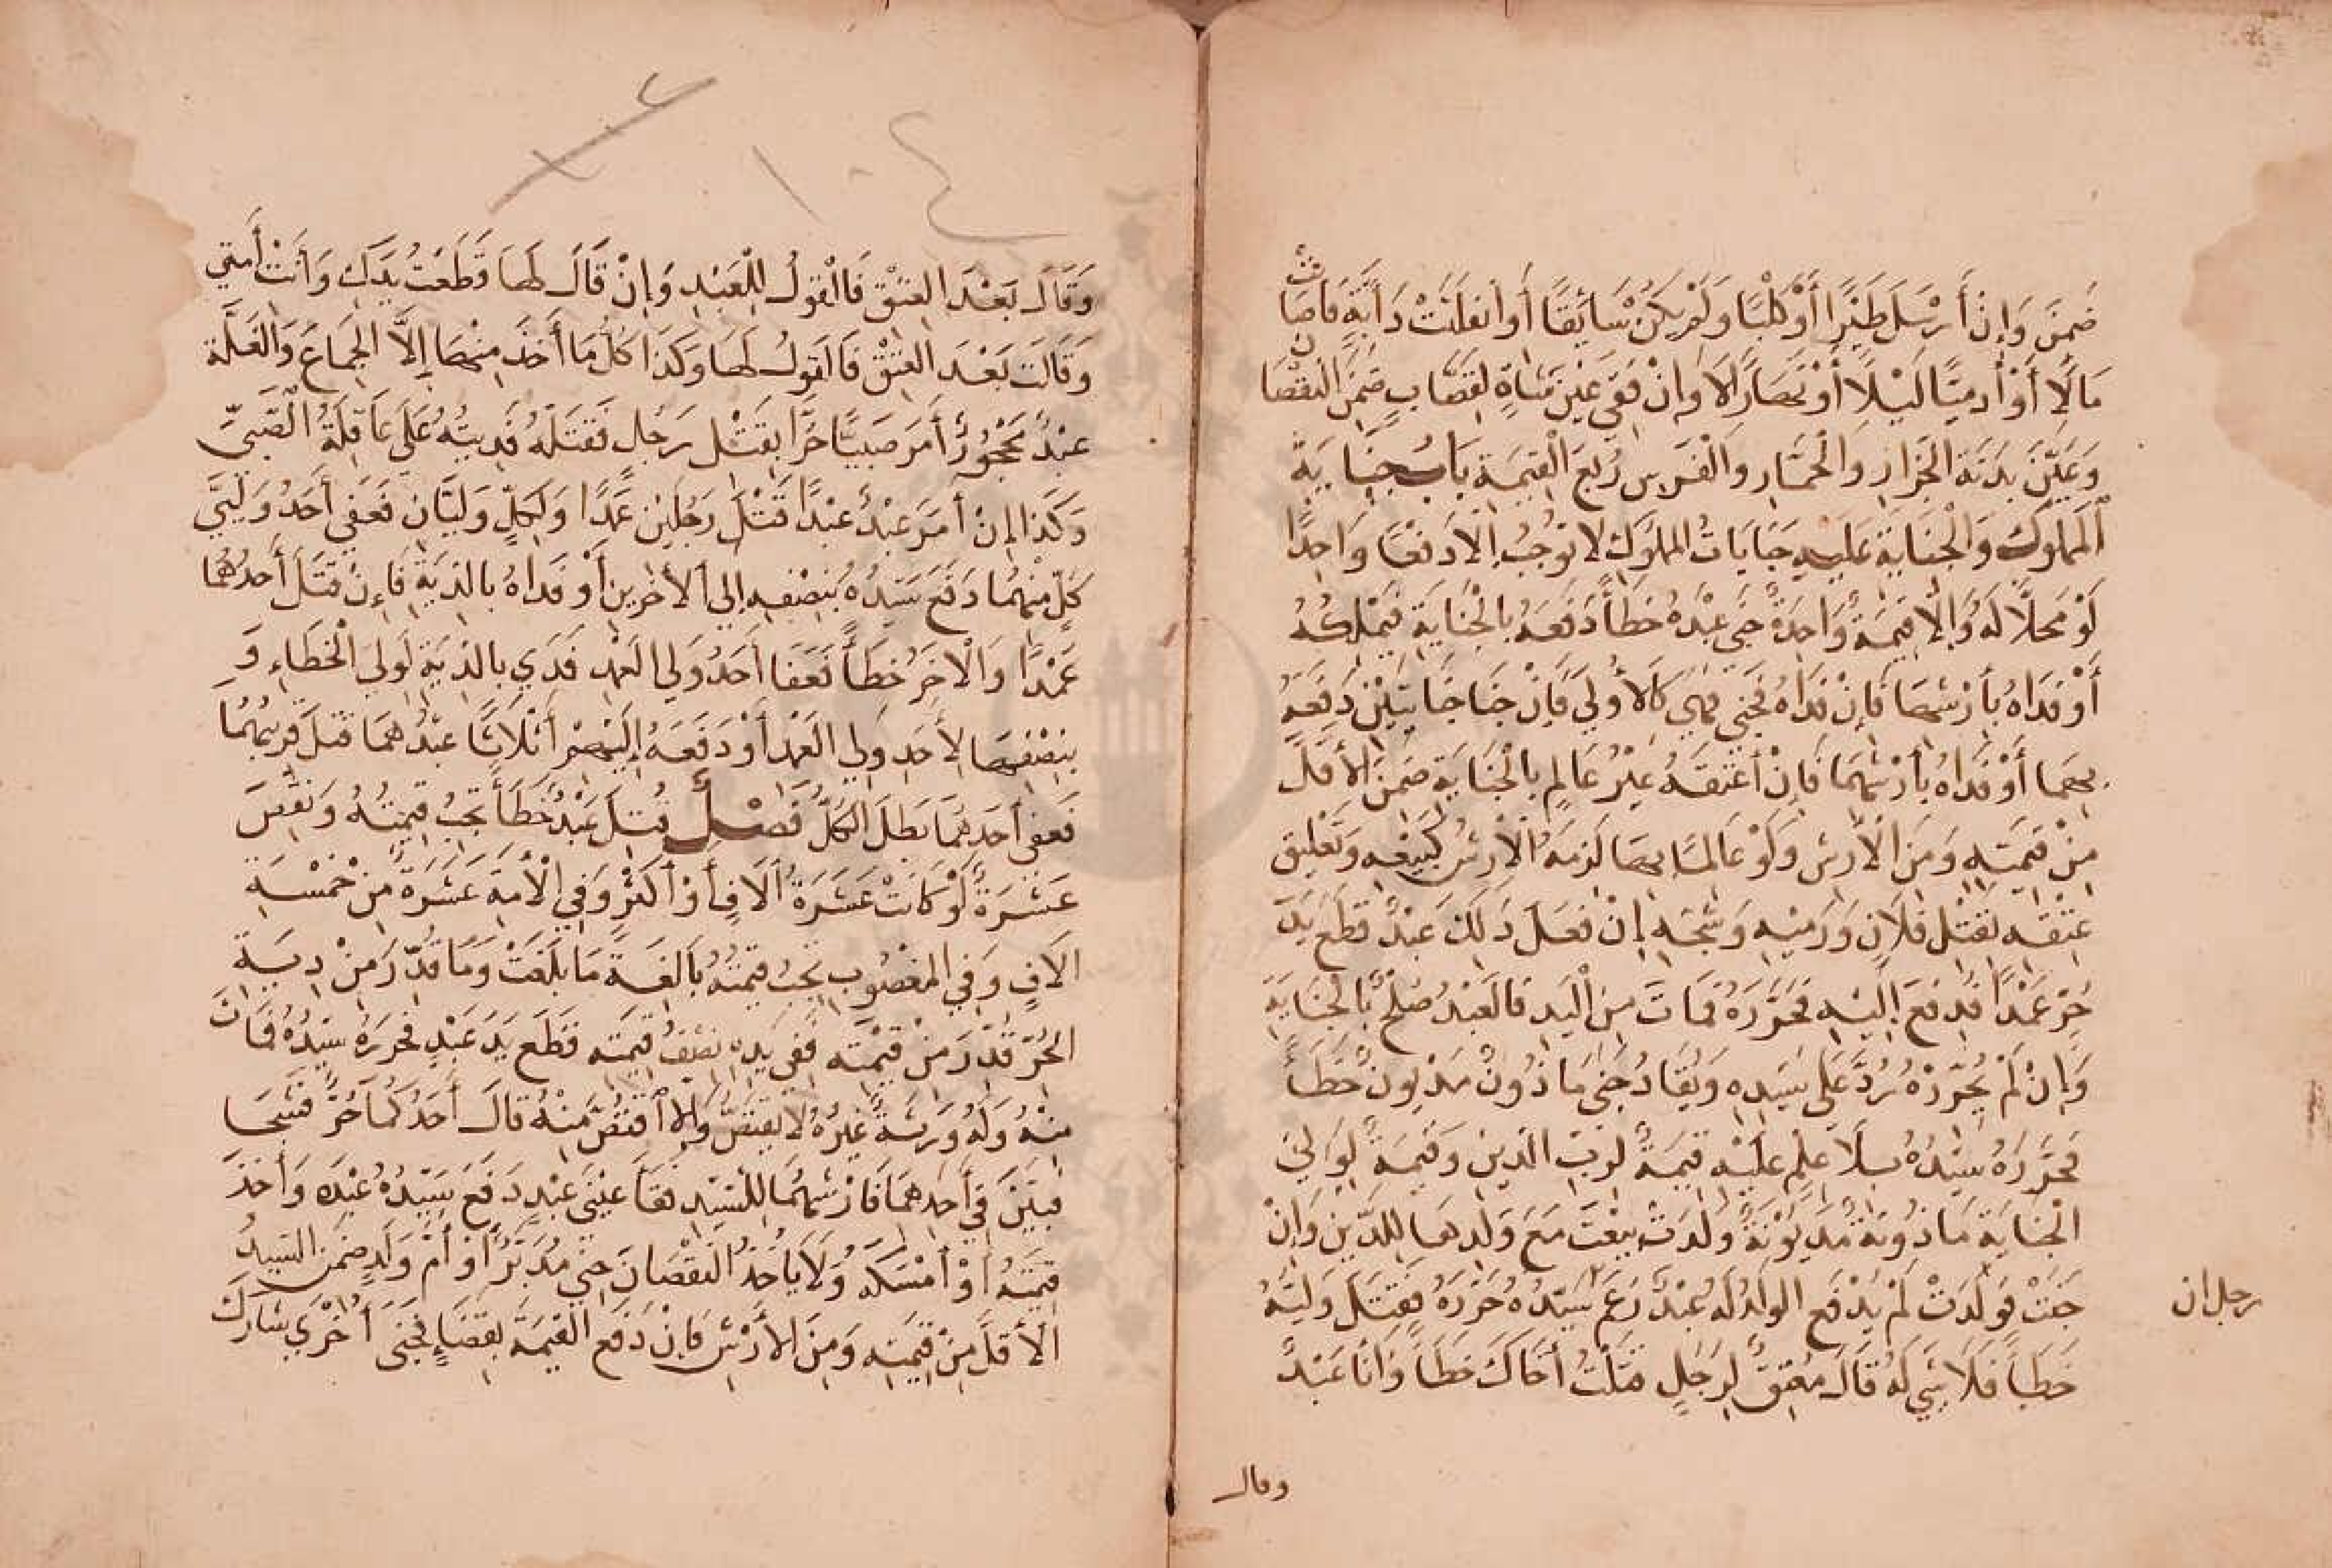 ضَمِنَ وَإِنْ أَرْسَلَ طَيْرًا أَوْ كَلْبًا وَلَمْ يَكُنْ سَائِقًا أَوِ انْفَلَتَتْ دَابَّةٌ فَأَصَابَتْ
مَالًا أَوْ آدَمِيًّا لَيْلًا أَوْ نَهَارًا لَا وَإِنْ فَقَى عَيْنَ شَاةٍ لِقَصَّابٍ ضَمِنَ النُّقْصَانَ
وَعَيْنُ بَدَنَةِ الْجَزَّارِ وَالْحِمَارِ وَالْفَرَسِ رُبُعُ الْقِيمَةِ بَابُ جِنَايَةِ
الْمَمْلُوكِ وَالْجِنَايَةِ عَلَيْهِ جِنَايَاتُ الْمَمْلُوكِ لَا تُوجِبُ إِلَّا دَفْعًا وَاحِدًا
لَوْ مَحَلًّا لَهُ وَإِلَّا قِيمَةً وَاحِدَةً جَنَى عَبْدُهُ خَطَأً دَفَعَهُ بِالْجِنَايَةِ فَيَمْلِكُهُ
أَوْ فَدَاهُ بِأَرْشِهَا فَإِنْ فَدَاهُ فَجَنَى فَهِيَ كَالْأُولَى فَإِنْ جَنَا جَنَايَتَيْنِ دَفَعَهُ
بِهِمَا أَوْ فَدَاهُ بِأَرْشِهِمَا فَإِنْ أَعْتَقَهُ غَيْرَ عَالِمٍ بِالْجِنَايَةِ ضَمِنَ الْأَقَلَّ
مِنْ قِيمَتِهِ وَمِنَ الْأَرْشِ وَلَوْ عَالِمًا بِهَا لَزِمَهُ الْأَرْشُ كَبَيْعِهِ وَتَعْلِيقِ
عِتْقِهِ بِقَتْلِ فُلَانٍ وَرَمْيِهِ وَشَجِّهِ إِنْ فَعَلَ ذَلِكَ عَبْدٌ قَطَعَ يَدَ
حُرٍّ عَمْدًا فَدُفِعَ إِلَيْهِ فَحَرَّرَهُ فَمَاتَ مِنَ الْيَدِ فَالْعَبْدُ صُلْحٌ بِالْجِنَايَةِ
وَإِنْ لَمْ يُحَرِّرْهُ رُدَّ عَلَى سَيِّدِهِ وَيُقَادُ جَنَى مَأْذُونٌ مَدْيُونٌ خَطَأً
فَحَرَّرَهُ سَيِّدُهُ بِلَا عِلْمٍ عَلَيْهِ قِيمَةٌ لِرَبِّ الدَّيْنِ وَقِيمَةٌ لِوَلِيِّ
الْجِنَايَةِ مَأْذُونَةٌ مَدْيُونَةٌ وَلَدَتْ بِيعَتْ مَعَ وَلَدِهَا لِلدَّيْنِ وَإِنْ
جَنَتْ فَوَلَدَتْ لَمْ يُدْفَعِ الْوَلَدُ لَهُ عَبْدٌ زَعَمَ سَيِّدُهُ حَرَّرَهُ فَقَتَلَ وَلِيَّهُ
رجل ان
خَطَأً فَلَا شَيْ لَهُ قَالَ مُعْتَقٌ لِرَجُلٍ قَتَلْتُ أَخَاكَ خَطَأً وَأَنَا عَبْدٌ
وقال
١٠٤
وَقَالَ بَعْدَ الْعِتْقِ فَالْقَوْلُ لِلْعَبْدِ وَإِنْ قَالَ لَهَا قَطَعْتُ يَدَكِ وَأَنْتِ أَمَتِي
وَقَالَتْ بَعْدَ الْعِتْقِ فَالْقَوْلُ لَهَا وَكَذَا كُلُّ مَا أَخَذَ مِنْهَا إِلَّا الْجِمَاعَ وَالْغَلَّةَ
عَبْدٌ مَحْجُورٌ أَمَرَ صَبِيًّا حُرًّا بِقَتْلِ رَجُلٍ فَقَتَلَهُ فَدِيَتُهُ عَلَى عَاقِلَةِ الصَّبِيِّ
وَكَذَا إِنْ أَمَرَ عَبْدٌ عَبْدًا قَتَلَ رَجُلَيْنِ عَمْدًا وَلِكُلٍّ وَلِيَّانِ فَعَفَى أَحَدُ وَلِيَّيْ
كُلٍّ مِنْهُمَا دَفَعَ سَيِّدُهُ نِصْفَهِ إِلَى الْآخَرَيْنِ أَوْ فَدَاهُ بِالدِّيَةِ فَإِنْ قَتَلَ أَحَدَهُمَا
عَمْدًا وَالْآخَرَ خَطَأً فَعَفَا أَحَدُ وَلِيِ الْعَمْدِ فَدَى بِالدِّيَةِ لِوَلِيِ الْخَطَاءِ وَ
بِنِصْفِهَا لِأَحَدِ وَلِيِ الْعَمْدِ أَوْ دَفَعَهُ إِلَيْهِمْ أَثْلَاثًا عَبْدُهُمَا قَتَلَ قَرِيبَهُمَا
فَعَفَى أَحَدُهُمَا بَطَلَ الْكُلُّ فَصْلٌ قُتِلَ عَبْدٌ خَطَأً تَجِبُ قِيمَتُهُ وَنَقَصَ
عَشَرَةً لَوْ كَانَتْ عَشَرَةَ آلَافٍ أَوْ أَكْثَرَ وَفِي الْأَمَةِ عَشَرَةٌ مِنْ خَمْسَةِ
آلَافٍ وَفِي الْمَغْصُوبِ تَجِبُ قِيمَتُهُ بَالِغَةً مَا بَلَغَتْ وَمَا قُدِّرَ مِنْ دِيَةِ
الْحُرِّ قُدِّرَ مِنْ قِيمَتِهِ فَفِي يَدِهِ نِصْفُ قِيمَتِهِ قَطَعَ يَدَ عَبْدٍ فَحَرَّرَهُ سَيِّدُهُ فَمَاتَ
مِنْهُ وَلَهُ وَرَثَةٌ غَيْرُهُ لَا يُقْتَصُّ وَإِلَّا اقْتُصَّ مِنْهُ قَالَ أَحَدُكُمَا حُرٌّ فَشُجَّا
فَبَيَّنَ فِي أَحَدِهِمَا فَأَرْشُهُمَا لِلسَّيِّدِ فَقَأَ عَيْنَيْ عَبْدٍ دَفَعَ سَيِّدُهُ عَبْدَهُ وَأَخَذَ
قِيمَتَهُ أَوْ أَمْسَكَهُ وَلَا يَأْخُذُ النُّقْصَانَ جَنَى مُدَبَّرٌ أَوْ أُمُّ وَلَدٍ ضَمِنَ السَّيِّدُ
الْأَقَلَّ مِنْ قِيمَتِهِ وَمِنَ الْأَرْشِ فَإِنْ دَفَعَ الْقِيمَةَ بِقَضَاءٍ فَجَنَى أُخْرَى شَارَكَ